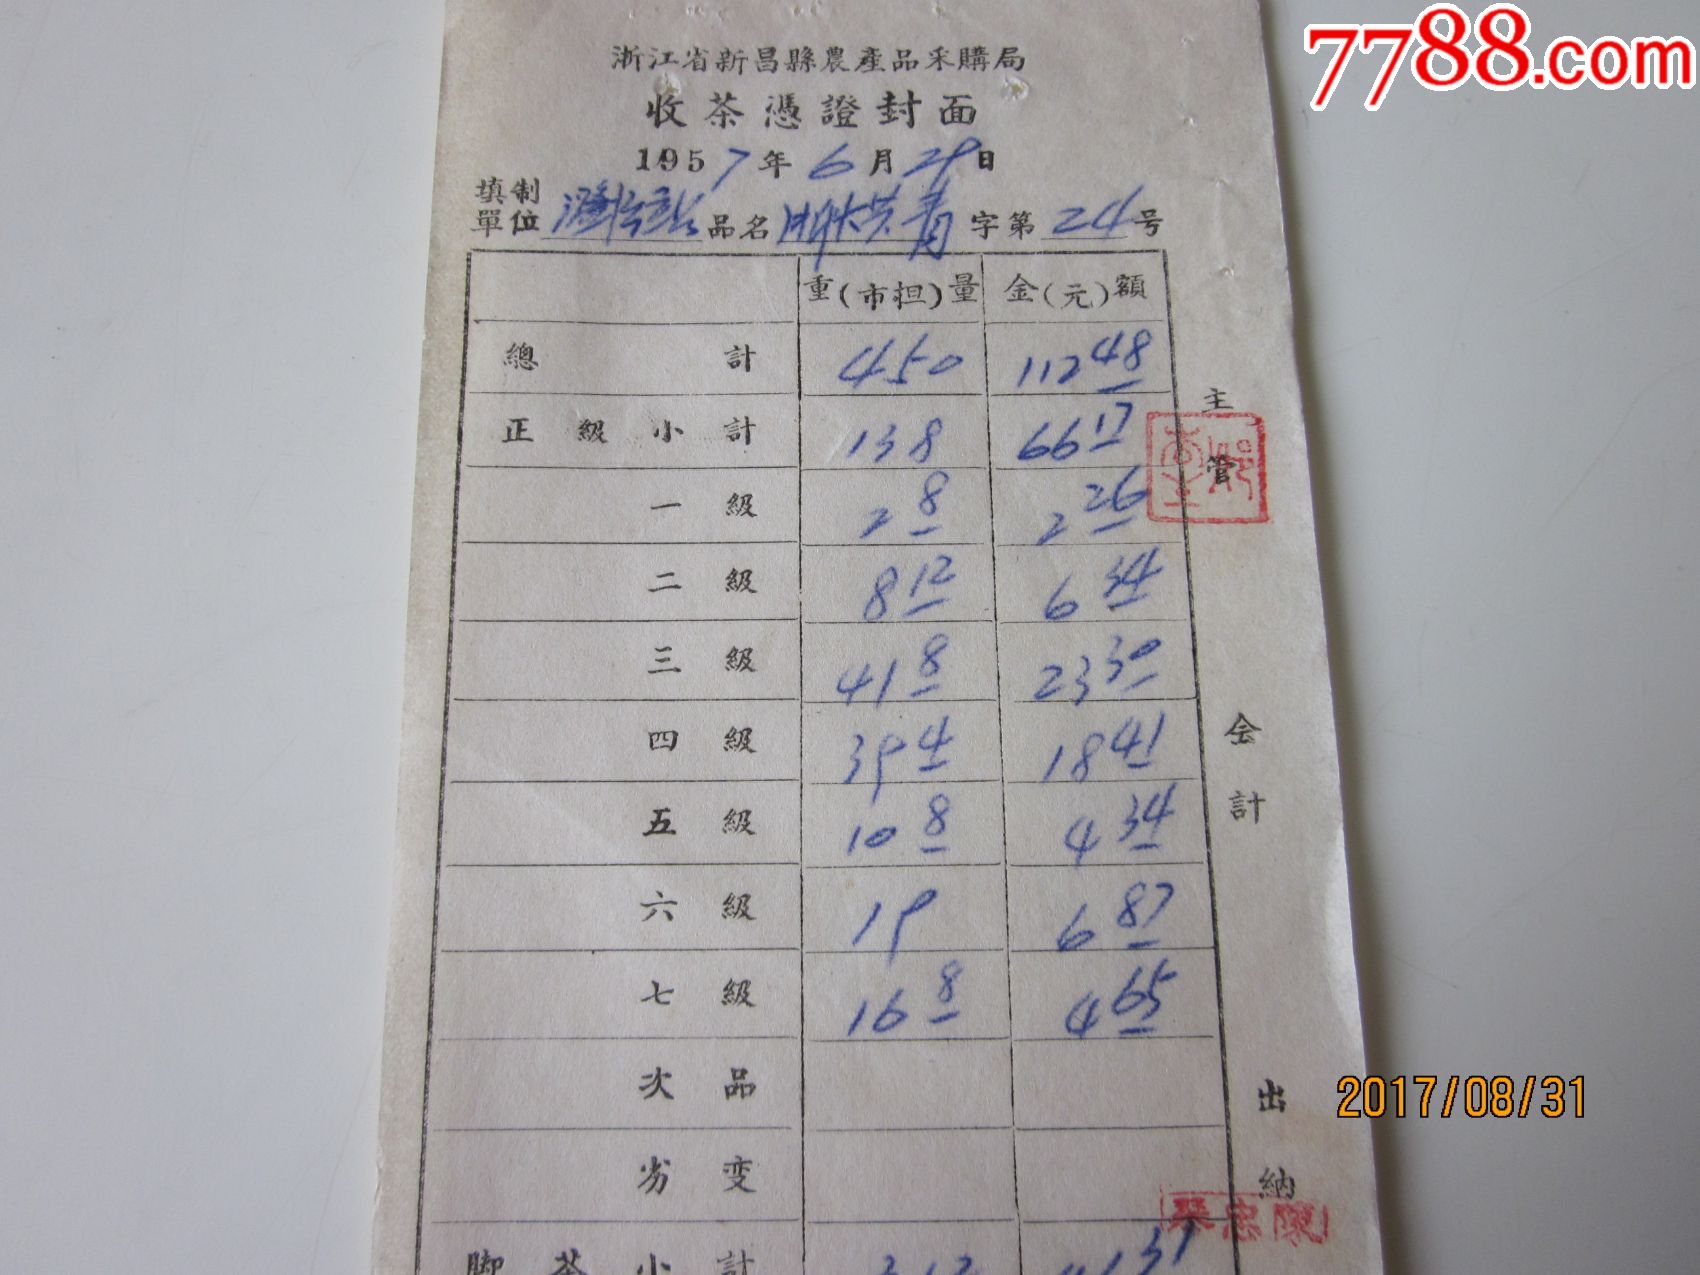 7788.com
浙江省新昌縣農產品采購局
收茶憑證封面
1957年6月29日
填制單位 品名 烘青 字第24号
重(市担)量 金(元)額
總計 450 112 48
正級小計 138 66 17
一級 2 8 2 26
二級 8 12 6 34
三級 41 8 23 30
四級 39 4 18 41
五級 10 8 4 34
六級 19 6 87
七級 16 8 4 65
次品
劣变
脚茶小計 312
主管
会計
出納
陳忠琴
2017/08/31